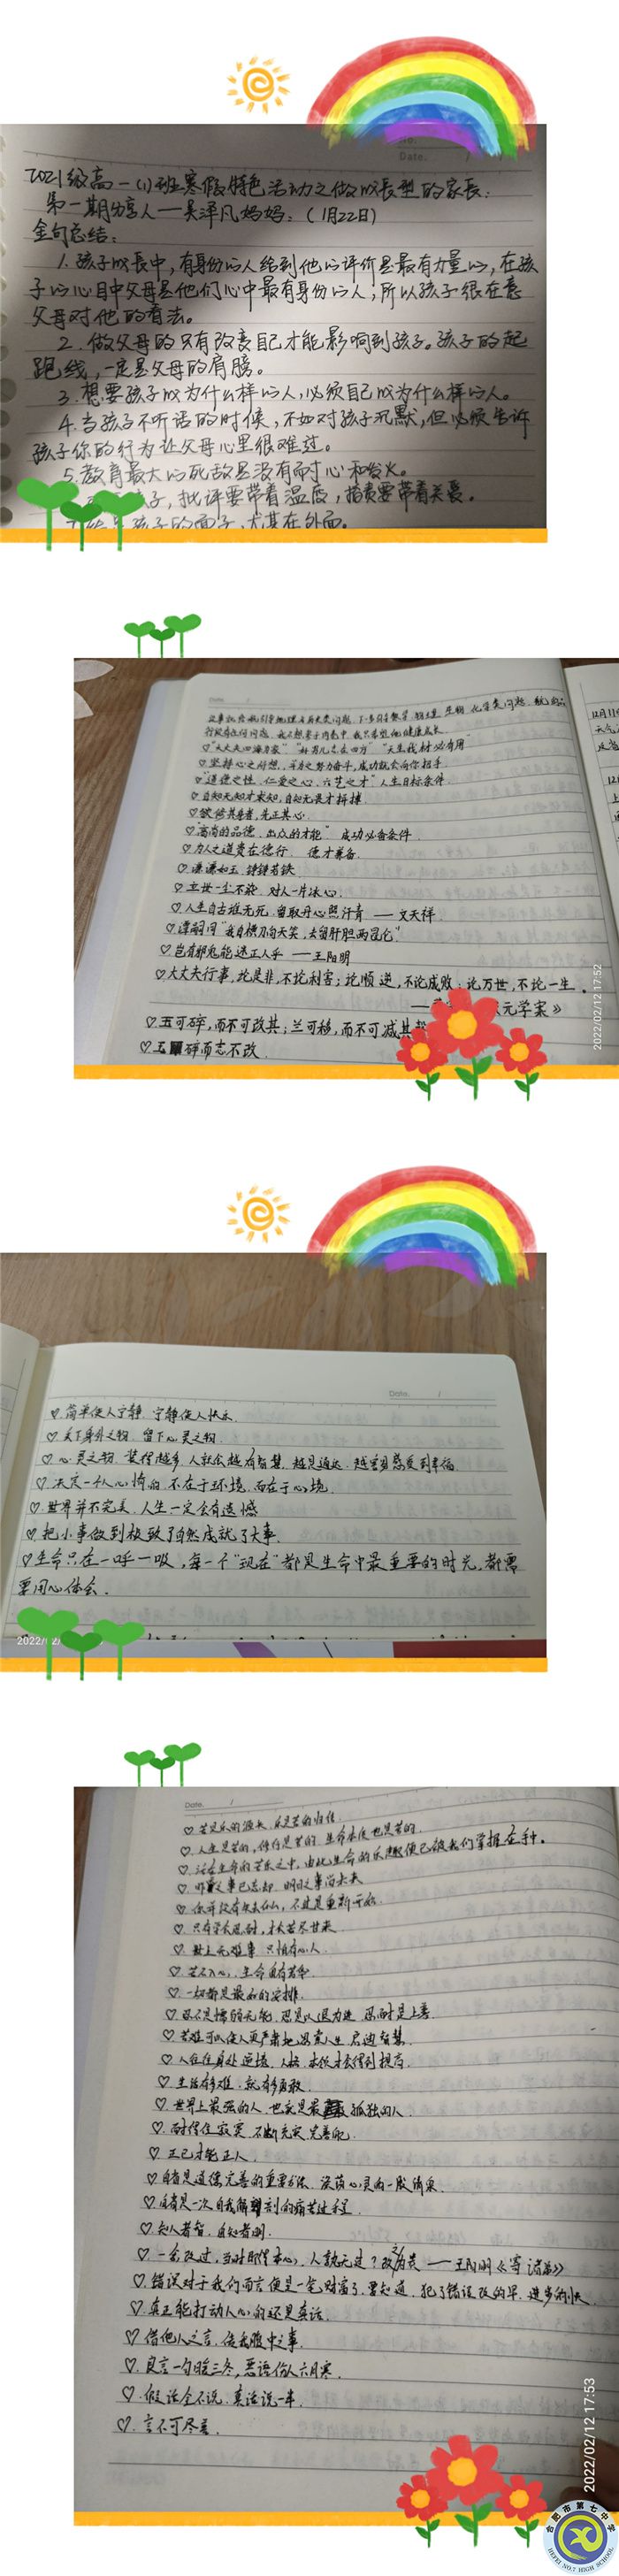 No.
Date. /
2021级高一(1)班寒假特色活动之做成长型的家长:
第一期分享人——吴泽凡妈妈:(1月22日)
金句总结:
1. 孩子成长中,有身份的人给到他的评价是最有力量的,在孩
子的心目中父母是他们心中最有身份的人,所以孩子很在意
父母对他的看法。
2. 做父母的只有改变自己才能影响到孩子。孩子的起
跑线,一定是父母的肩膀。
3. 想要孩子成为什么样的人,必须自己成为什么样的人。
4. 当孩子不听话的时候,不如对孩子沉默,但必须告诉
孩子你的行为让父母心里很难过。
5. 教育最大的死敌是没有耐心和发火。
孩子,批评要带着温度,指责要带着关爱。
孩子的面子,尤其在外面。
Date. /
♡"大丈夫四海为家" "好男儿志在四方" "天生我材必有用"
♡坚持心之所想,平身之努力奋斗,成功就会向你招手
♡"道德之性、仁爱之心、六艺之才"人生目标条件
♡自知无知才求知,自知无畏才拼搏
♡欲修其身者,先正其心.
♡"高尚的品德、出众的才能" 成功必备条件.
♡为人之道贵在德行、德才兼备.
♡谦谦如玉 铮铮若铁
♡立世一尘不染、对人一片冰心.
♡人生自古谁无死,留取丹心照汗青 ——文天祥.
♡谭嗣同"我自横刀向天笑,去留肝胆两昆仑"
♡岂有邪鬼能迷正人乎 ——王阳明
♡大丈夫行事,论是非,不论利害;论顺逆,不论成败;论万世,不论一生.
元学案》
♡玉可碎,而不可改其;兰可移,而不可减其
♡玉碎而志不改.
2022/02/12 17:52
Date. /
♡简单使人宁静,宁静使人快乐.
♡关下身外之物,留下心灵之物
♡心灵之物,装得越多,人就会越有智慧,越是通达,越容易感受到幸福
♡决定一个人心情的,不在于环境,而在于心境.
♡世界并不完美,人生一定会有遗憾
♡把小事做到极致了自然成就了大事.
♡生命只在一呼一吸,每一个"现在"都是生命中最重要的时光,都需
要用心体会.
2022/02/
Date. /
♡苦是乐的源头,乐是苦的归结.
♡人生是苦的,修行是苦的,生命本质也是苦的.
♡活在生命的苦乐之中,由此生命的乐趣便已被我们掌握在手.
♡昨日之事已忘却,明日之事尚未来
♡你并没有失去什么,不过是重新开始.
♡只有学会忍耐,才会苦尽甘来
♡世上无难事 只怕有心人
♡若不入心,生命自有芳华
♡一切都是最好的安排.
♡忍不是懦弱无能,忍是以退为进,忍耐是上善.
♡苦难可以使人更严肃地思索人生,启迪智慧.
♡人往往身处逆境,人格、本领才会得到提高.
♡生活有多难,就有多勇敢.
♡世界上最强的人,也就是最孤独的人.
♡耐得住寂寞,不断充实、完善自己.
♡正己才能正人.
♡自省是道德完善的重要方法,滋润心灵的一股清泉.
♡自省是一次自我解剖的痛苦过程.
♡知人者智,自知者明.
♡一念改过,当时即得本心,人孰无过?改之为贵 ——王阳明《寄诸弟》
♡错误对于我们而言便是一笔财富了,要知道,犯了错误改的早,进步就快.
♡真正能打动人心的还是真话.
♡借他人之言,传我腹中之事.
♡良言一句暖三冬,恶语伤人六月寒.
♡假话全不说,真话说一半.
♡言不可尽善.
2022/02/12 17:53
合肥市第七中学
HEFEI NO.7 HIGH SCHOOL